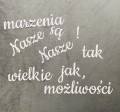 marzenia
Nasze są !
Nasze tak
wielkie jak,
możliwości